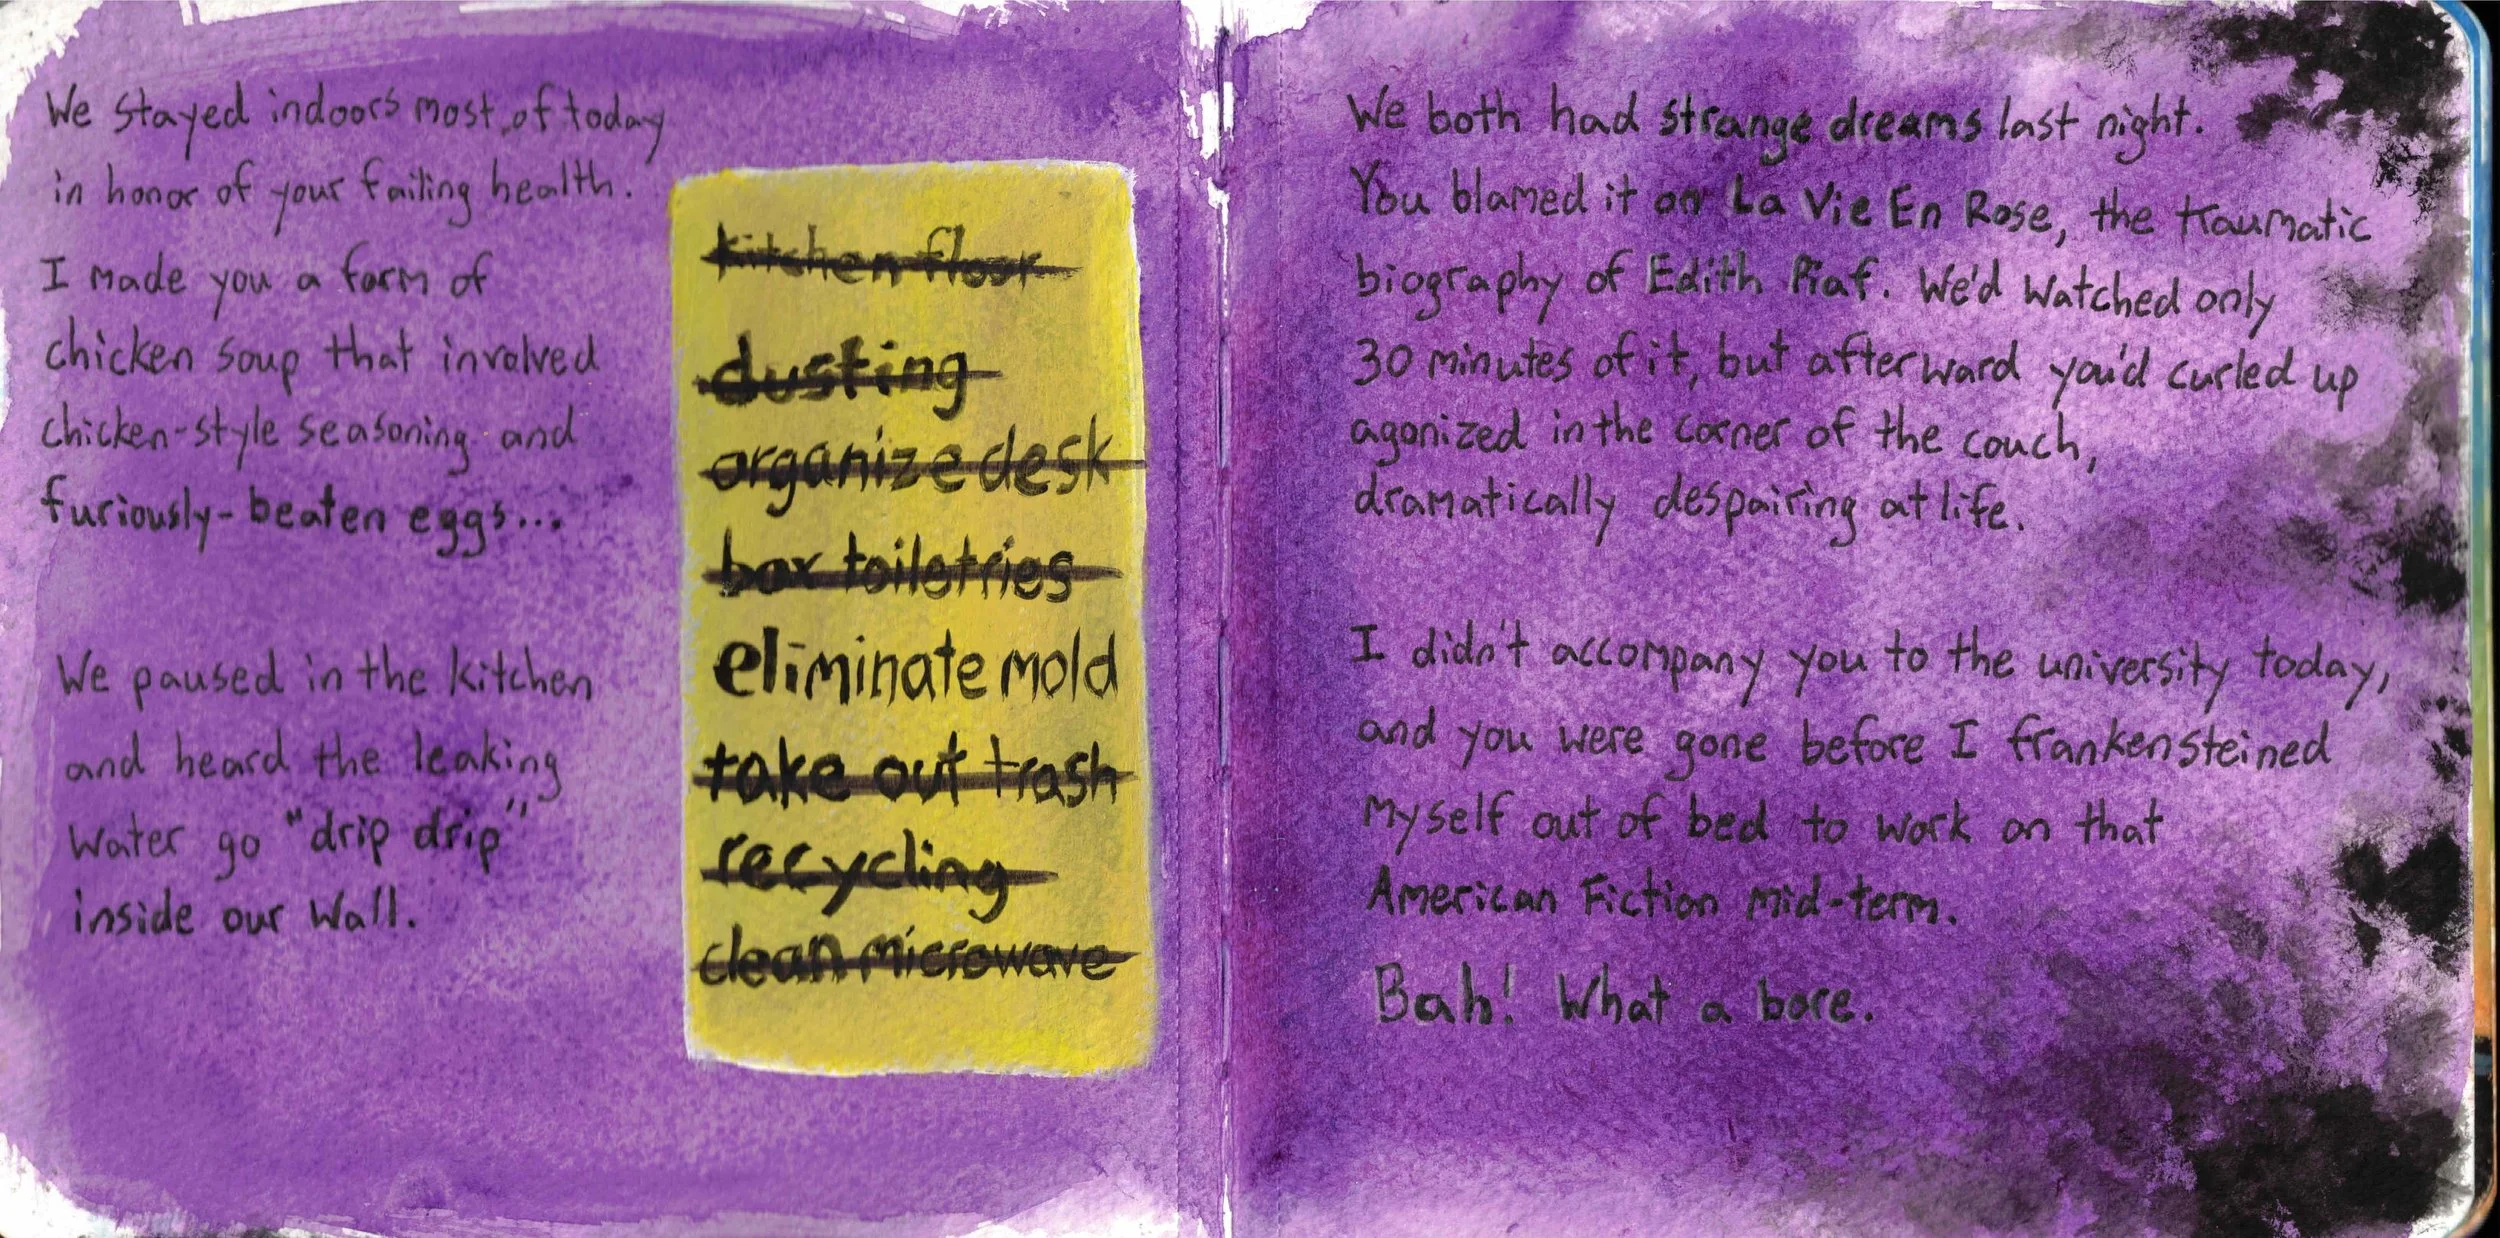 We stayed indoors most of today
in honor of your failing health.
I made you a form of
chicken soup that involved
chicken-style seasoning and
furiously-beaten eggs...
We paused in the kitchen
and heard the leaking
water go "drip drip"
inside our wall.
kitchen floor
dusting
organize desk
box toiletries
eliminate mold
take out trash
recycling
clean microwave
We both had strange dreams last night.
You blamed it on La Vie En Rose, the traumatic
biography of Edith Piaf. We'd watched only
30 minutes of it, but afterward you'd curled up
agonized in the corner of the couch,
dramatically despairing at life.
I didn't accompany you to the university today,
and you were gone before I frankensteined
myself out of bed to work on that
American Fiction mid-term.
Bah! What a bore.